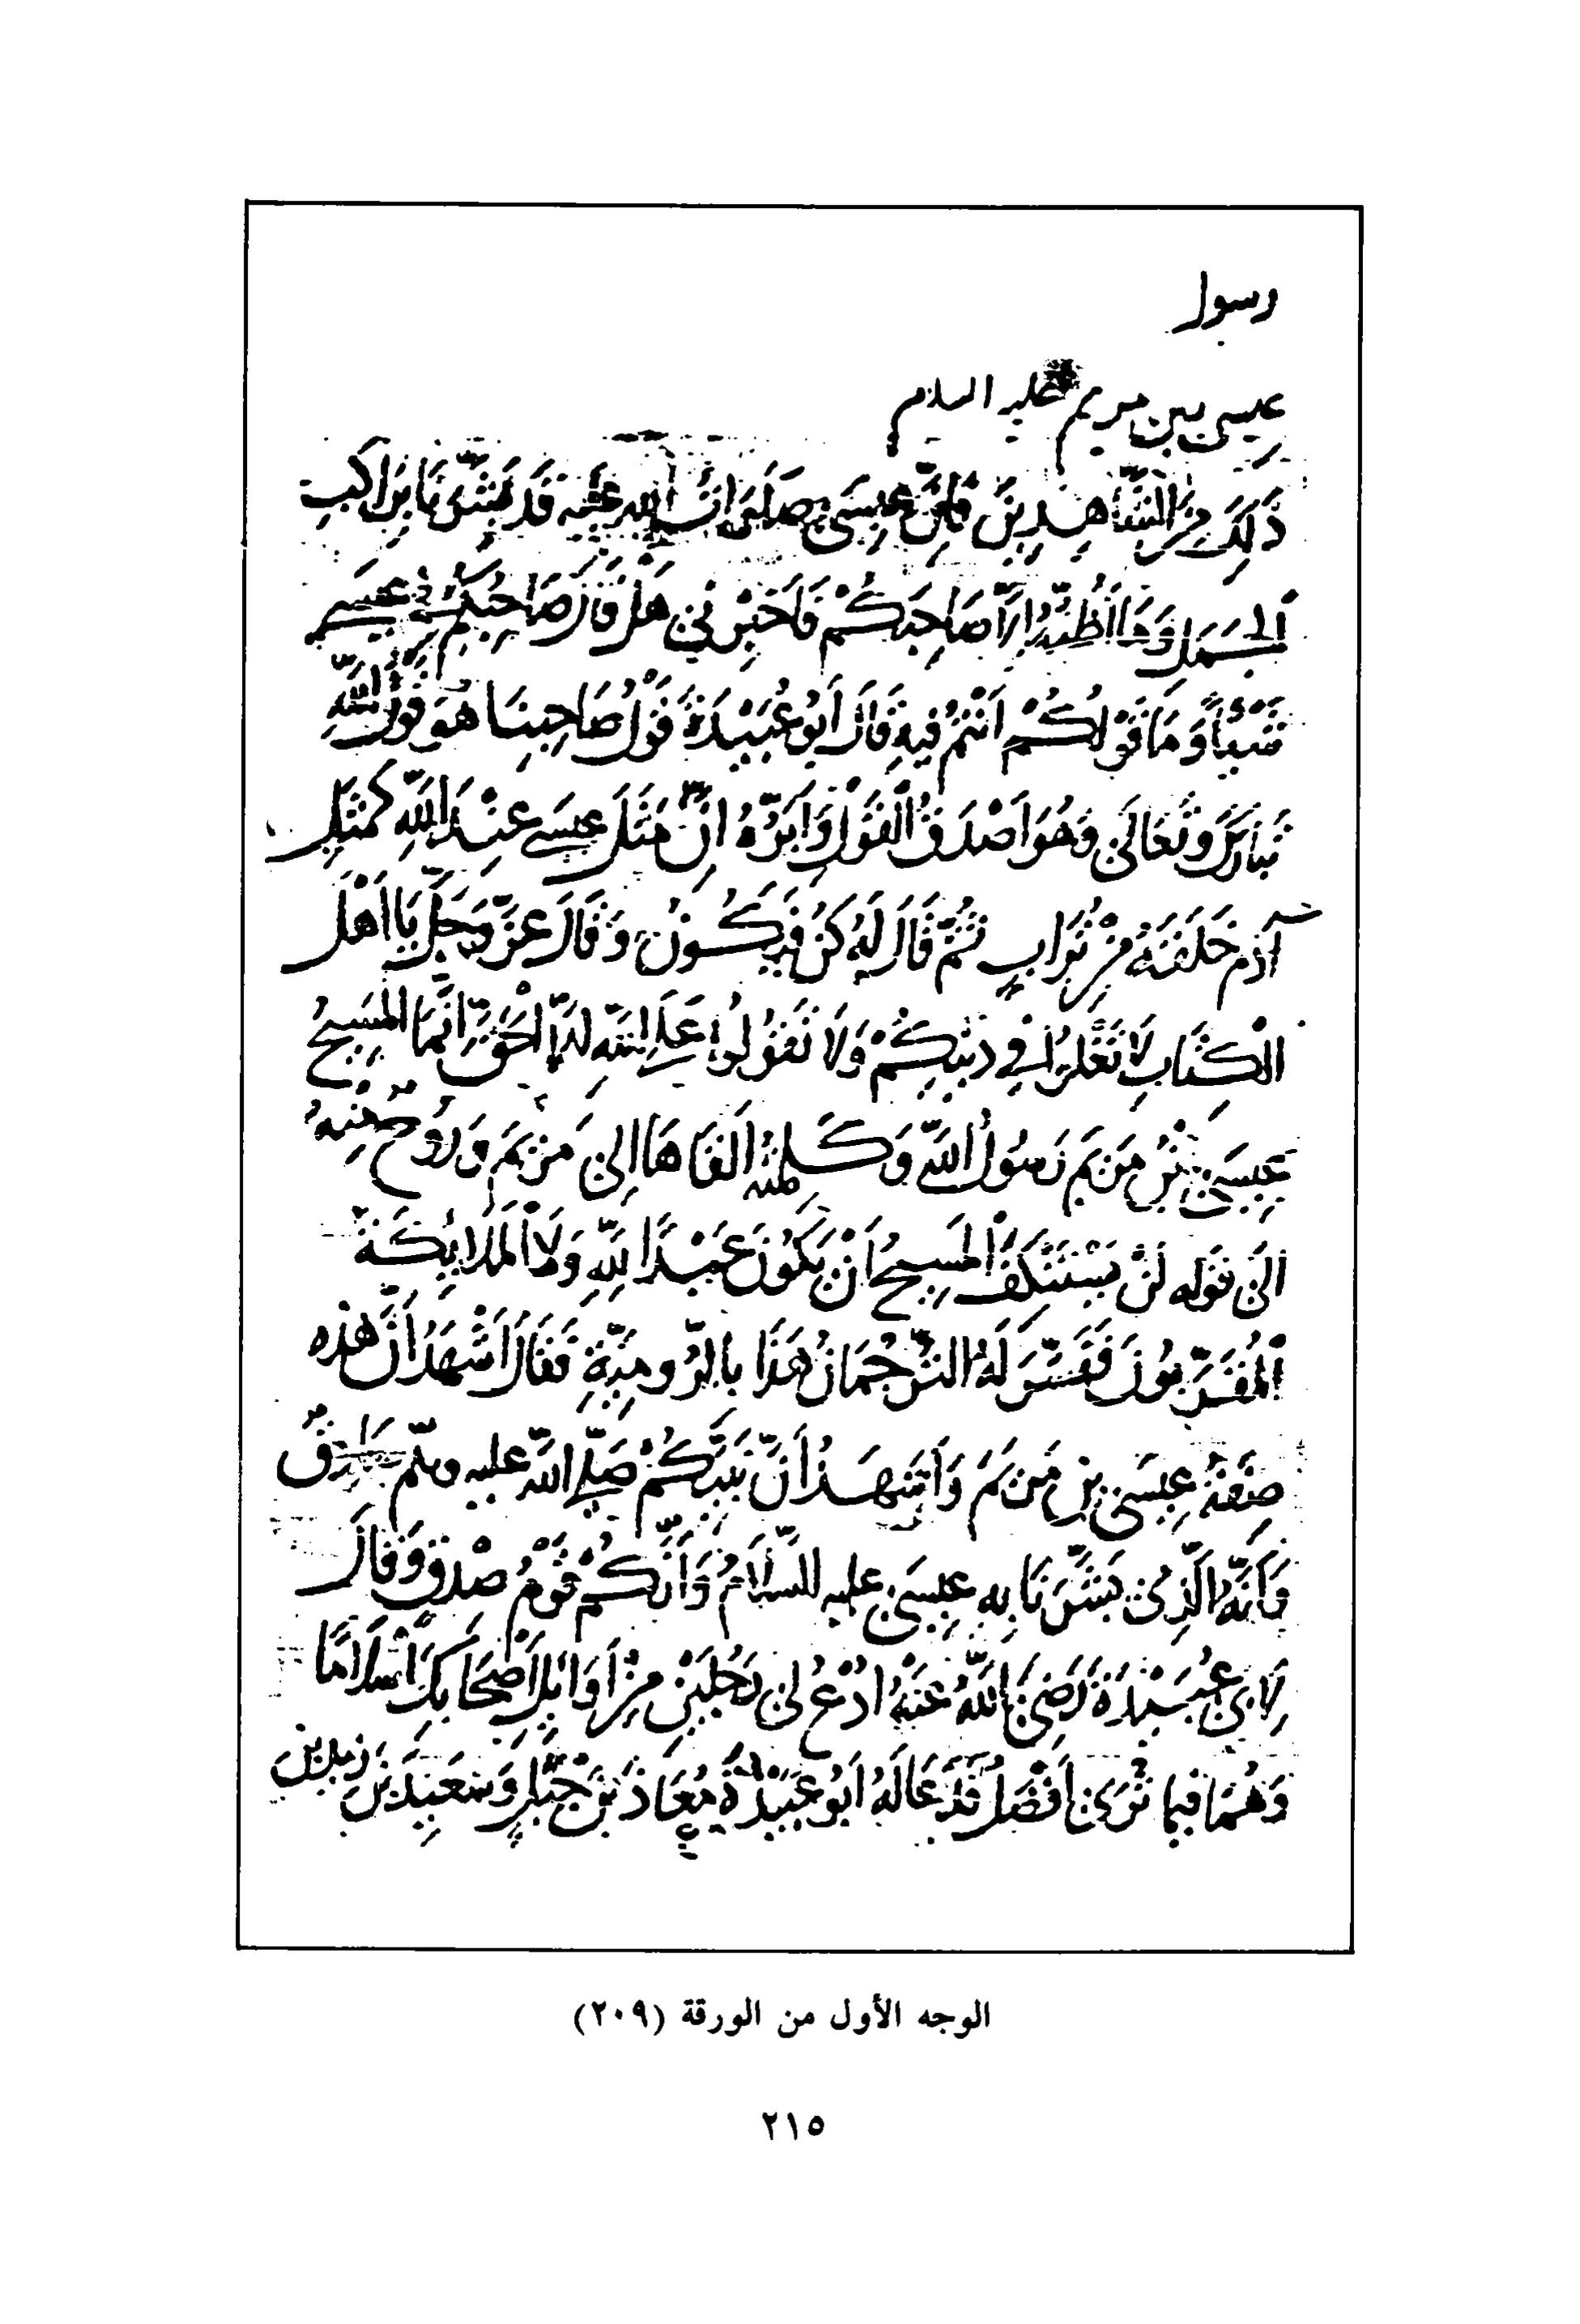 رسول
عيسى بن مريم عليه السلام
ذَلِكَ مِنَ الشَّاهِدِينَ فَإِنَّ عِيسَى صَلَّى اللهُ عليه قَدْ بَشَّرَنَا بِرَاكِبِ
الْجَمَلِ وَمَا أَظُنُّهُ إِلَّا صَاحِبَكُمْ فَأَخْبِرْنِي هَلْ قَالَ صَاحِبُكُمْ فِي عِيسَى
شَيْئاً وَمَا قَوْلُكُمْ أَنْتُمْ فِيهِ قَالَ أَبُو عُبَيْدَةَ قَوْلُ صَاحِبِنَا هُوَ قَوْلُ اللَّهِ
تَبَارَكَ وَتَعَالَى وَهُوَ أَصْدَقُ الْقَوْلِ وَأَبَرُّهُ إِنَّ مَثَلَ عِيسَى عِنْدَ اللَّهِ كَمَثَلِ
آدَمَ خَلَقَهُ مِنْ تُرَابٍ ثُمَّ قَالَ لَهُ كُنْ فَيَكُونُ وَقَالَ عَزَّ وَجَلَّ يَا أَهْلَ
الْكِتَابِ لَا تَغْلُوا فِي دِينِكُمْ وَلَا تَقُولُوا عَلَى اللَّهِ إِلَّا الْحَقَّ إِنَّمَا الْمَسِيحُ
عِيسَى بْنُ مَرْيَمَ رَسُولُ اللَّهِ وَكَلِمَتُهُ أَلْقَاهَا إِلَى مَرْيَمَ وَرُوحٌ مِنْهُ
إِلَى قَوْلِه لَنْ يَسْتَنْكِفَ الْمَسِيحُ أَنْ يَكُونَ عَبْدًا لِلَّهِ وَلَا الْمَلَائِكَةُ
الْمُقَرَّبُونَ فَفَسَّرَ لَهُ التُّرْجُمَانُ هَذَا بِالرُّومِيَّةِ فَقَالَ أَشْهَدُ أَنَّ هَذِه
صِفَةُ عِيسَى بْنِ مَرْيَمَ وَأَشْهَدُ أَنَّ نَبِيَّكُمْ صَلَّى اللَّهُ عليه وسلم صَادِقٌ
وَأَنَّهُ الَّذِي بَشَّرَنَا بِهِ عِيسَى عليه السَّلَامُ وَأَنَّكُمْ قَوْمُ صِدْقٍ وَقَالَ
لِأَبِي عُبَيْدَةَ رَضِيَ اللَّهُ عَنْهُ ادْعُ لِي رَجُلَيْنِ مِنْ أَوَائِلِ أَصْحَابِكَ إِسْلَامًا
وَهُمَا فِيمَا تُرَى أَفْضَلُ فَدَعَا لَهُ أَبُو عُبَيْدَةَ مُعَاذَ بْنَ جَبَلٍ وَسَعِيدَ بْنَ زيد بن
الوجه الأول من الورقة (٢٠٩)
٢١٥